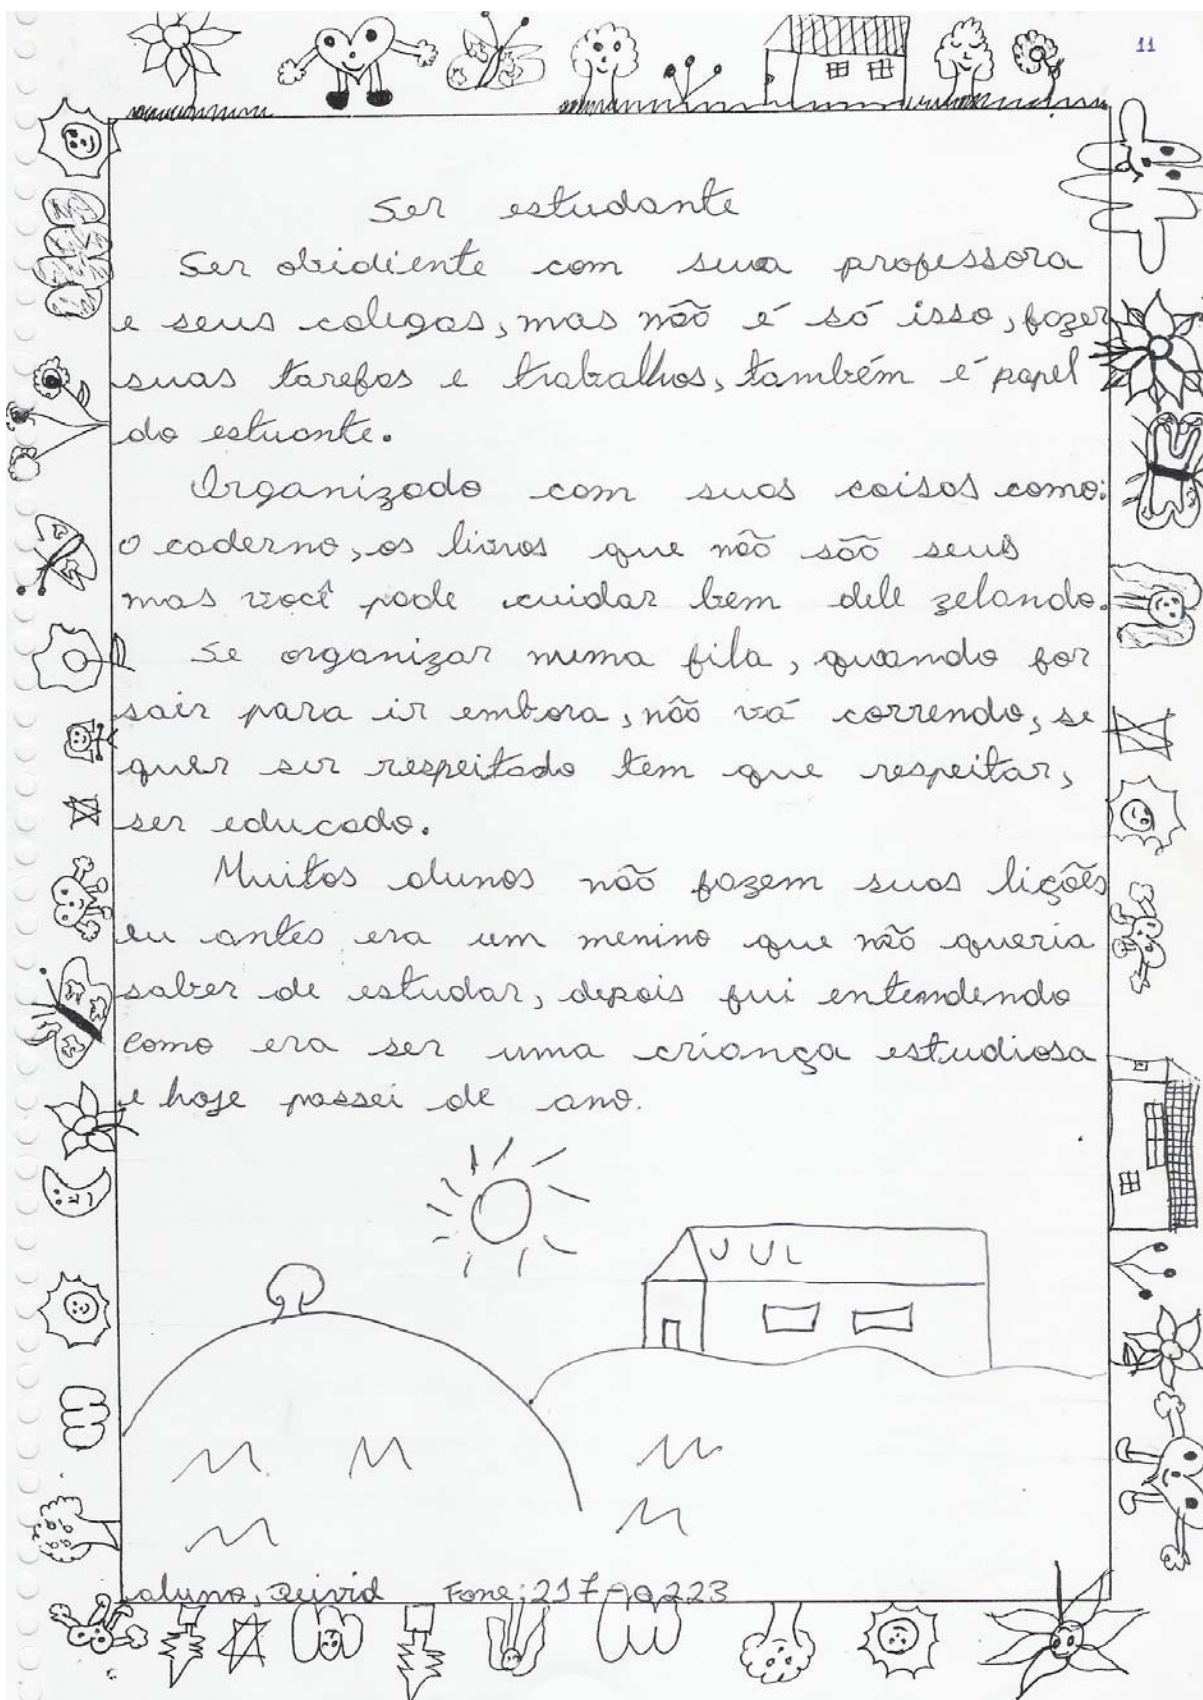 11
Ser estudante
Ser obidiente com sua professora
e seus colegas, mas não é só isso, fazer
suas tarefas e trabalhos, também é papel
do estuante.
Organizado com suas coisas como:
o caderno, os livros que não são seus
mas você pode cuidar bem dele zelando.
Se organizar numa fila, quando for
sair para ir embora, não vá correndo, se
quer ser respeitado tem que respeitar,
ser educado.
Muitos alunos não fazem suas lições
eu antes era um menino que não queria
saber de estudar, depois fui entendendo
como era ser uma criança estudiosa
e hoje passei de ano.
aluno, Deivid Fone: